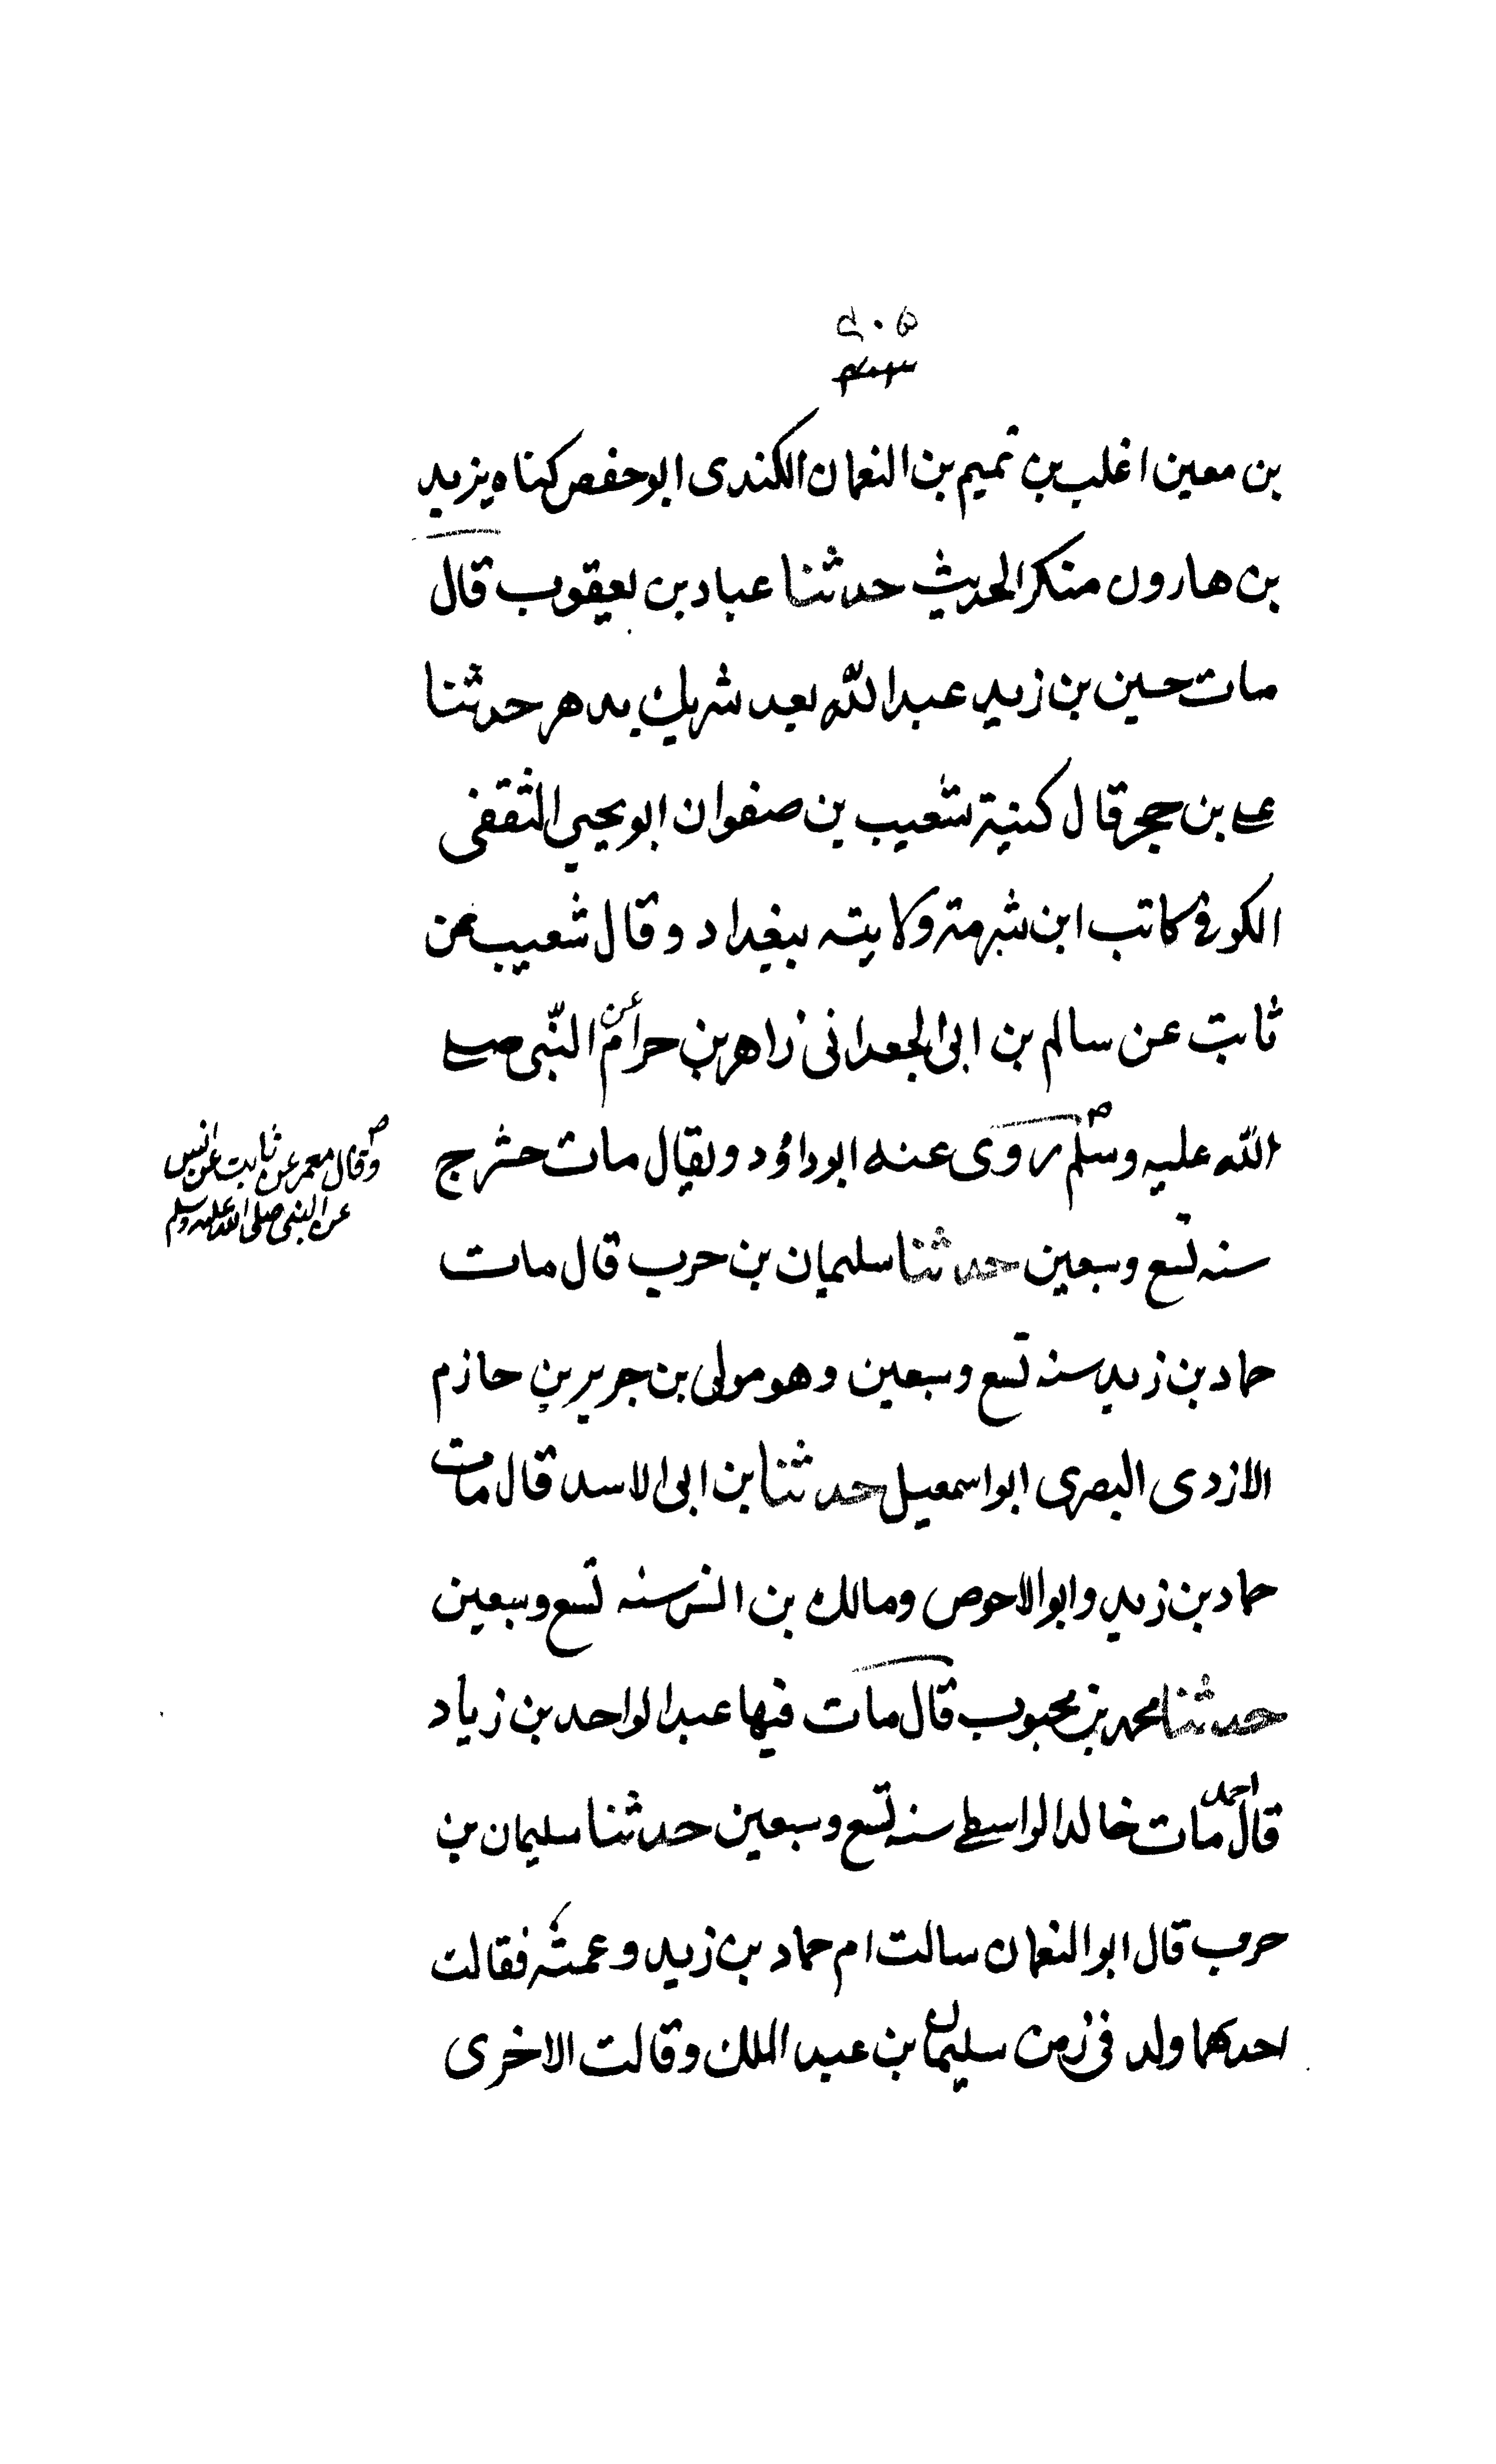 بن معين اغلب بن تميم بن النعمان الكندى ابو حفص كناه يزيد
بن هارون منكر الحديث حدثنا عباد بن يعقوب قال
مات حسين بن زيد عبد الله بعد شريك بدهر حدثنا
على بن حجر قال كنية شعيب بن صفوان ابو يحيى الثقفى
الكوفى كاتب ابن شبرمة ولايته ببغداد وقال شعيب عن
ثابت عن سالم بن ابى الجعد انى زاهر بن حرام عن النبى صلى
الله عليه وسلم روى عنه ابو داؤد ويقال مات حشرج
وقال معمر عن ثابت عن انس
عن النبى صلى الله عليه وسلم
سنه تسع وسبعين حدثنا سليمان بن حرب قال مات
حماد بن زيد سنه تسع وسبعين وهو مولى بن جرير بن حازم
الازدى البصرى ابو اسمعيل حدثنا بن ابى الاسد قال مات
حماد بن زيد وابو الاحوص ومالك بن انس سنه تسع وسبعين
حدثنا محمد بن محبوب قال مات فيها عبد الواحد بن زياد
قال احمد مات خالد الواسطى سنه تسع وسبعين حدثنا سليمان بن
حرب قال ابو النعمان سالت ام حماد بن زيد وعمته فقالت
احدهما ولد فى زمن سليمان بن عبد الملك وقالت الاخرى